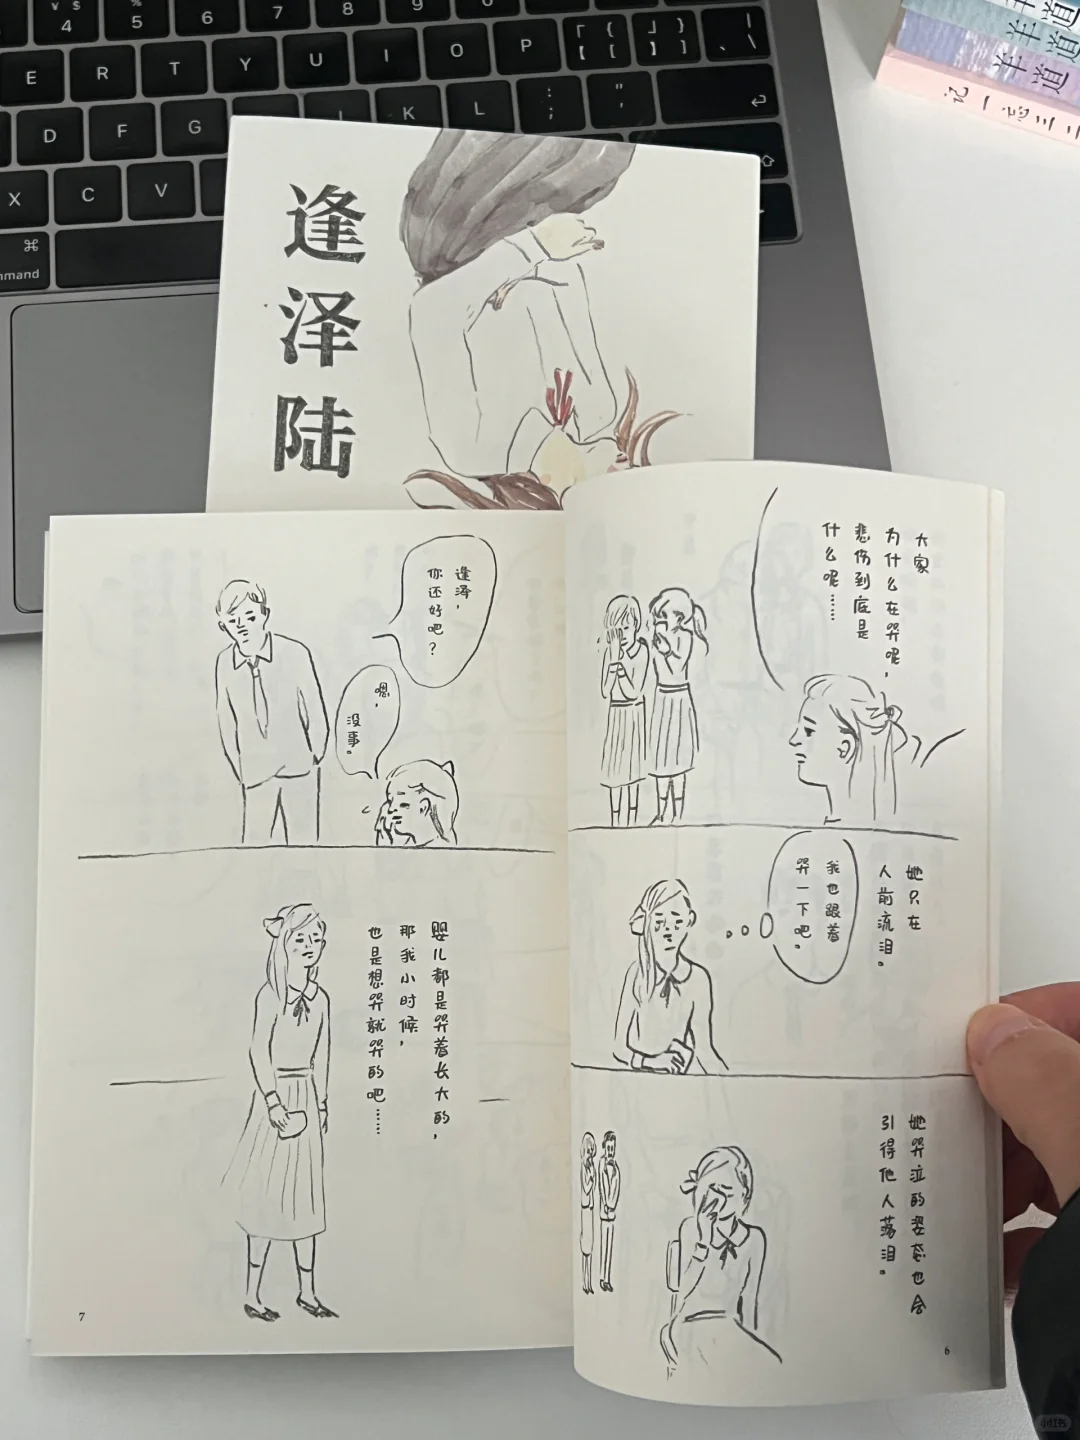 ¥ $
4
%
5
6
7
8
9
0
E
R
T
Y
U
I
O
P
「 {
【 [
」 }
】 ]
| 、 \
D
F
G
K
L
: ;
" '
X
C
V
⌘
mmand
羊道
羊道
羊道
记一忘三二
逢泽陆
大家
为什么在哭呢，
悲伤到底是
什么呢……
她只在
人前流泪。
我也跟着
哭一下吧。
她哭泣的姿态也会
引得他人落泪。
6
逢泽，
你还好吧？
嗯，
没事。
婴儿都是哭着长大的，
那我小时候，
也是想哭就哭的吧……
7
小红书